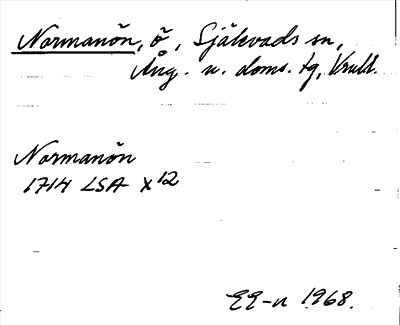 Normanön, ö, Själevads sn,
Ång. n. doms. tg, Vnrld.
Normanön
1714 LSA X12
EE-n 1968.